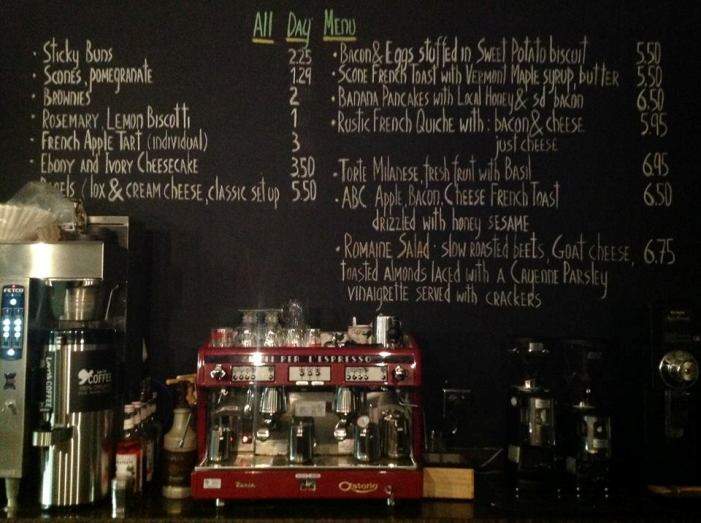 All Day Menu
· Sticky Buns 2.25
· Scones, pomegranate 1.29
· Brownies 2
· Rosemary, Lemon Biscotti 1
French Apple Tart (individual) 3
· Ebony and Ivory Cheesecake 3.50
lox & cream cheese, classic set up 5.50
· Bacon & Eggs stuffed in Sweet Potato biscuit 5.50
· Scone French Toast with Vermont Maple syrup, butter 5.50
· Banana Pancakes with Local Honey & sd bacon 6.50
· Rustic French Quiche with: bacon & cheese 5.95
just cheese
· Torte Milanese, fresh fruit with Basil 6.95
· ABC Apple, Bacon, Cheese French Toast 6.50
drizzled with honey sesame
· Romaine Salad · slow roasted beets, Goat cheese, 6.75
toasted almonds laced with a Cayenne Parsley
vinaigrette served with crackers
FETCO
COFFEE
PER L'ESPRESSO
Astoria